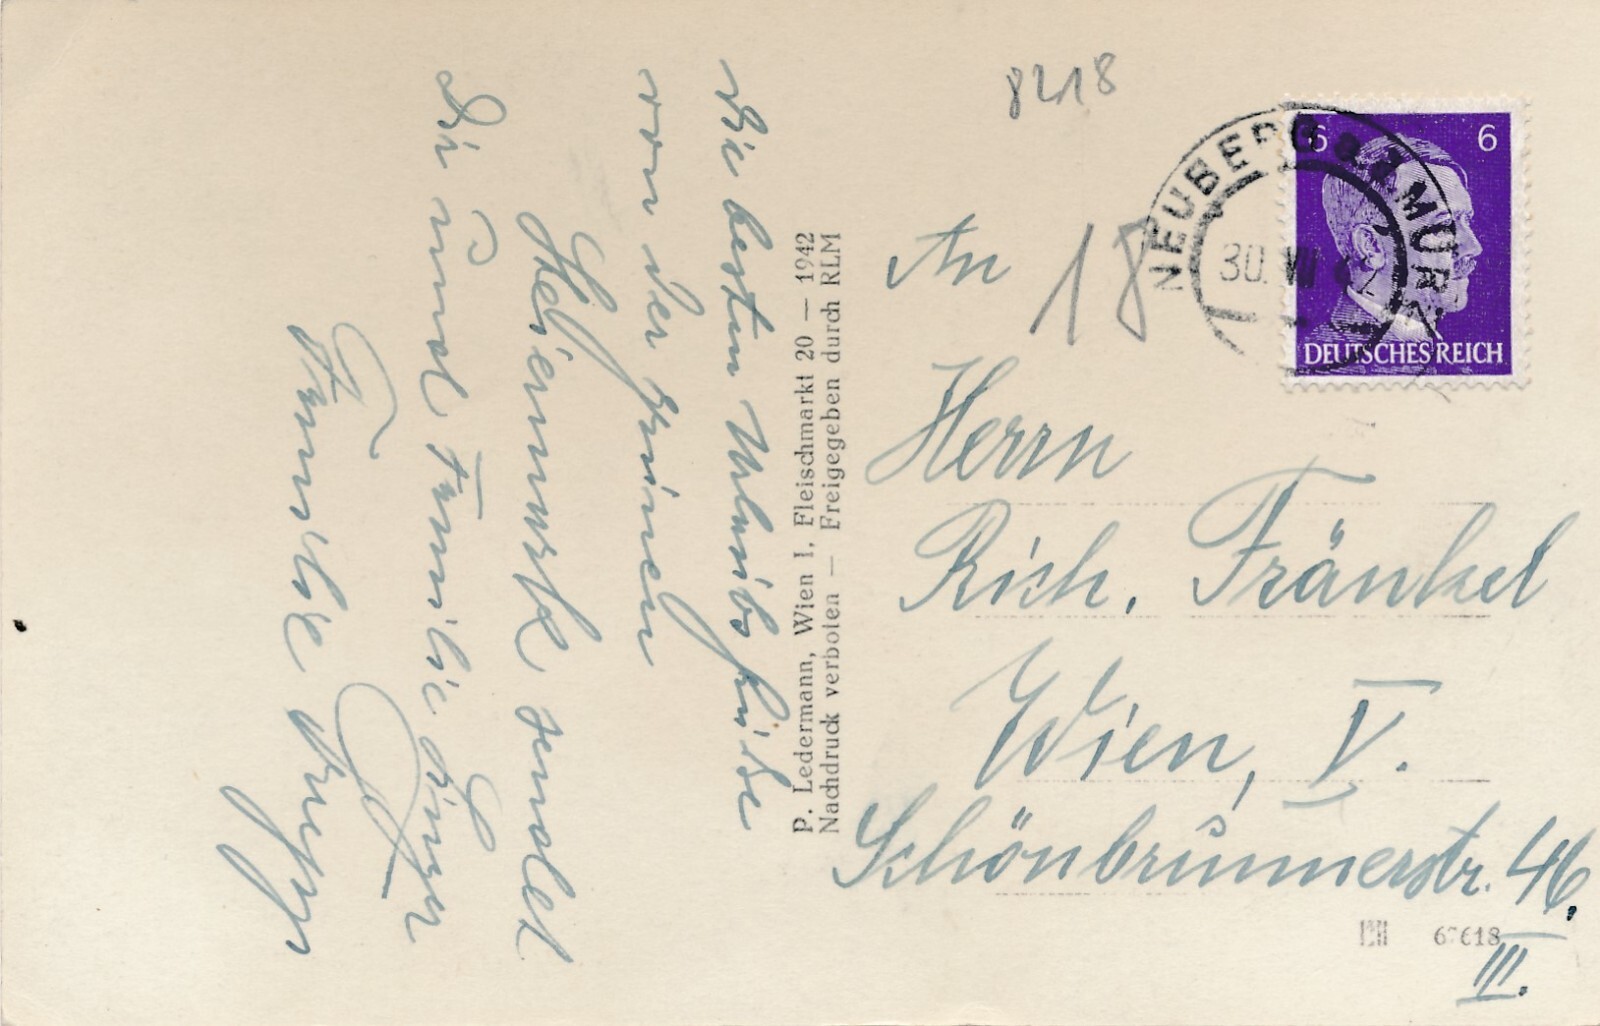 Die besten Urlaubsgrüße
von der grünen
Steiermark sendet
Dir und Familie
Familie
P. Ledermann, Wien I, Fleischmarkt 20 — 1942
Nachdruck verboten — Freigegeben durch RLM
8218
18
6 6
DEUTSCHES REICH
NEUBERG a.d. MÜRZ
30. VII 42
An
Herrn
Rich. Fränkel
Wien, V.
Schönbrunnerstr. 46.
III.
67618